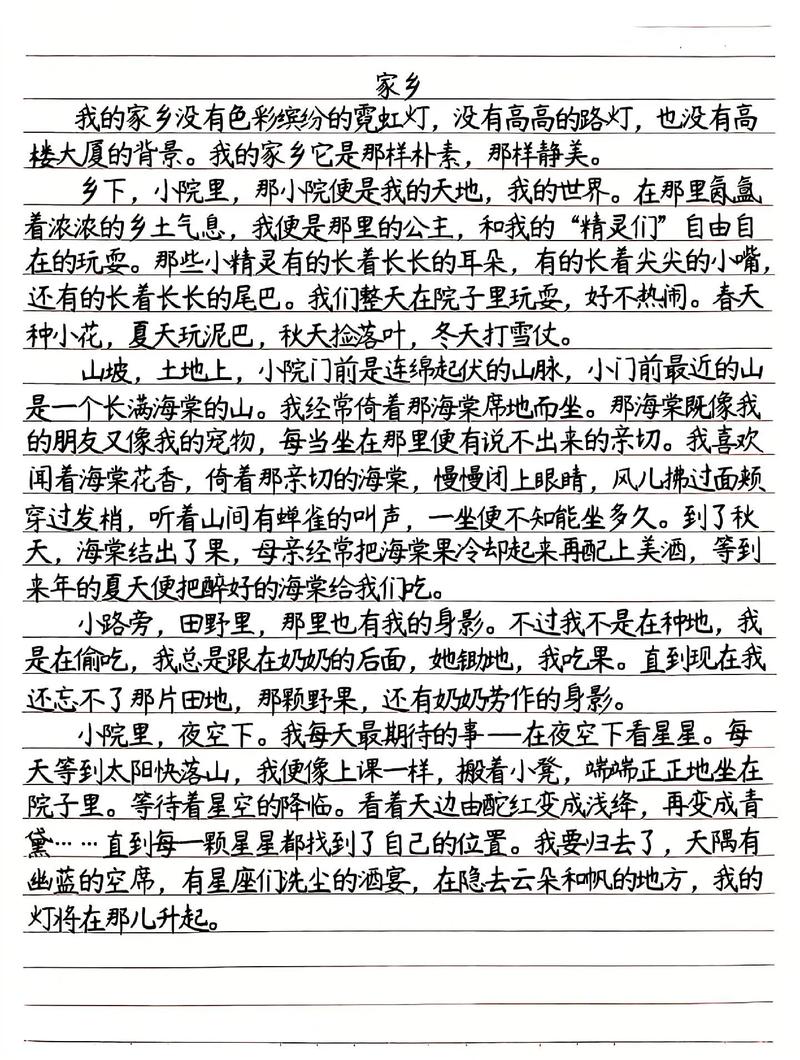 家乡
我的家乡没有色彩缤纷的霓虹灯，没有高高的路灯，也没有高
楼大厦的背景。我的家乡它是那样朴素，那样静美。
乡下，小院里，那小院便是我的天地，我的世界。在那里氤氲
着浓浓的乡土气息，我便是那里的公主，和我的“精灵们”自由自
在的玩耍。那些小精灵有的长着长长的耳朵，有的长着尖尖的小嘴，
还有的长着长长的尾巴。我们整天在院子里玩耍，好不热闹。春天
种小花，夏天玩泥巴，秋天捡落叶，冬天打雪仗。
山坡，土地上，小院门前是连绵起伏的山脉，小门前最近的山
是一个长满海棠的山。我经常倚着那海棠席地而坐。那海棠既像我
的朋友又像我的宠物，每当坐在那里便有说不出来的亲切。我喜欢
闻着海棠花香，倚着那亲切的海棠，慢慢闭上眼睛，风儿拂过面颊
穿过发梢，听着山间有蝉雀的叫声，一坐便不知能坐多久。到了秋
天，海棠结出了果，母亲经常把海棠果冷却起来再配上美酒，等到
来年的夏天便把醉好的海棠给我们吃。
小路旁，田野里，那里也有我的身影。不过我不是在种地，我
是在偷吃，我总是跟在奶奶的后面，她锄地，我吃果。直到现在我
还忘不了那片田地，那颗野果，还有奶奶劳作的身影。
小院里，夜空下。我每天最期待的事——在夜空下看星星。每
天等到太阳快落山，我便像上课一样，搬着小凳，端端正正地坐在
院子里。等待着星空的降临。看着天边由酡红变成浅绛，再变成青
黛……直到每一颗星星都找到了自己的位置。我要归去了，天隅有
幽蓝的空席，有星座们洗尘的酒宴，在隐去云朵和帆的地方，我的
灯将在那儿升起。